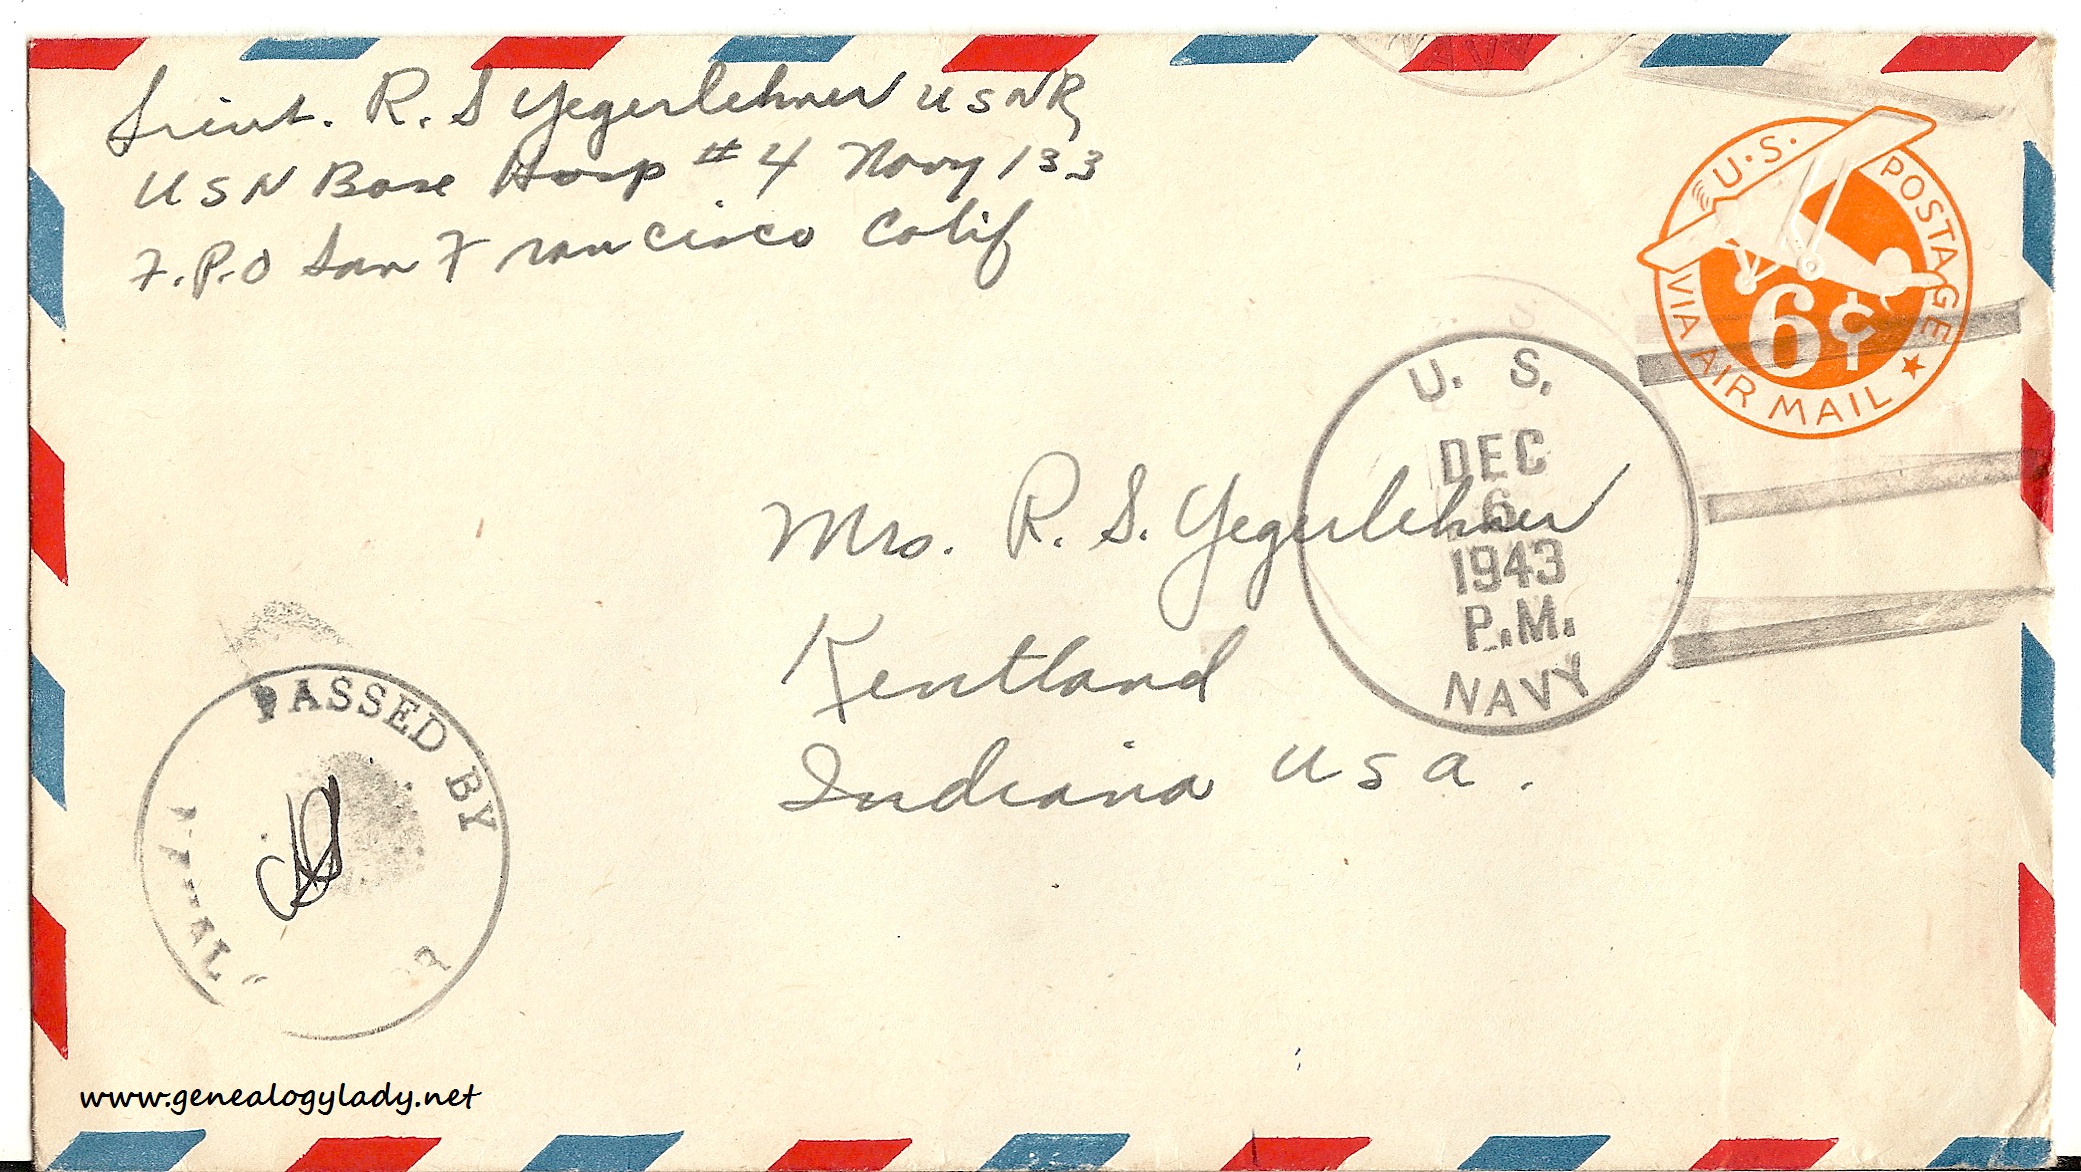 Lieut. R. S Yegerlehner USNR
USN Base Hosp #4 Navy 133
F.P.O San Francisco Calif
U.S. POSTAGE
6¢
VIA AIR MAIL
U. S.
DEC
6
1943
P.M.
NAVY
Mrs. R. S. Yegerlehner
Kentland
Indiana USA.
PASSED BY
www.genealogylady.net